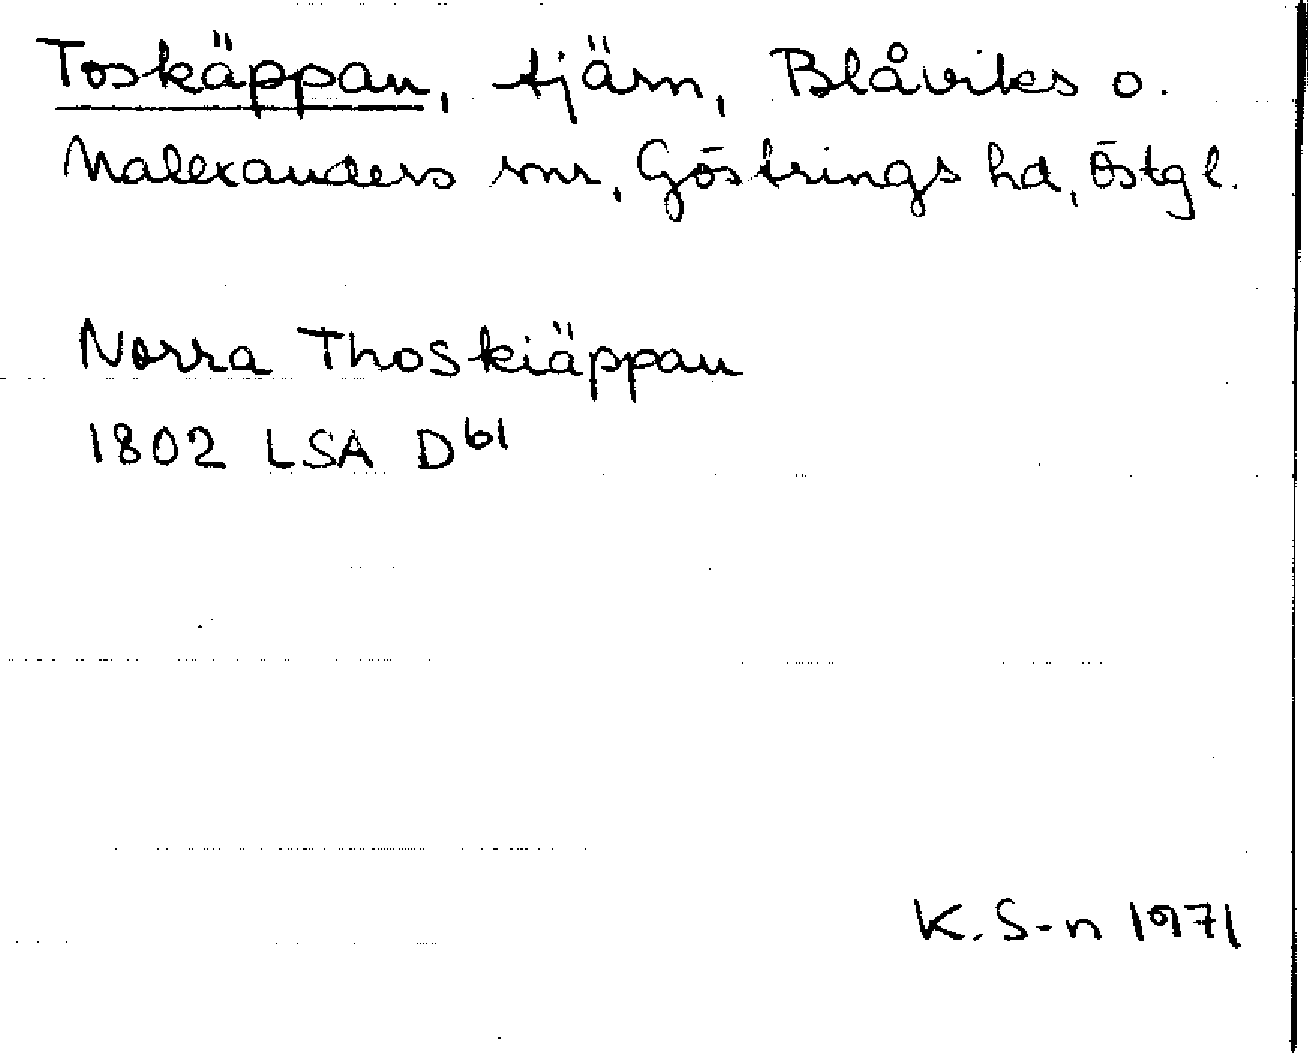 Toskäppan, tjärn, Blåviks o.
Malexanders snr, Göstrings hd, Östgl.
Norra Thoskiäppan
1802 LSA D61
K. S-n 1971